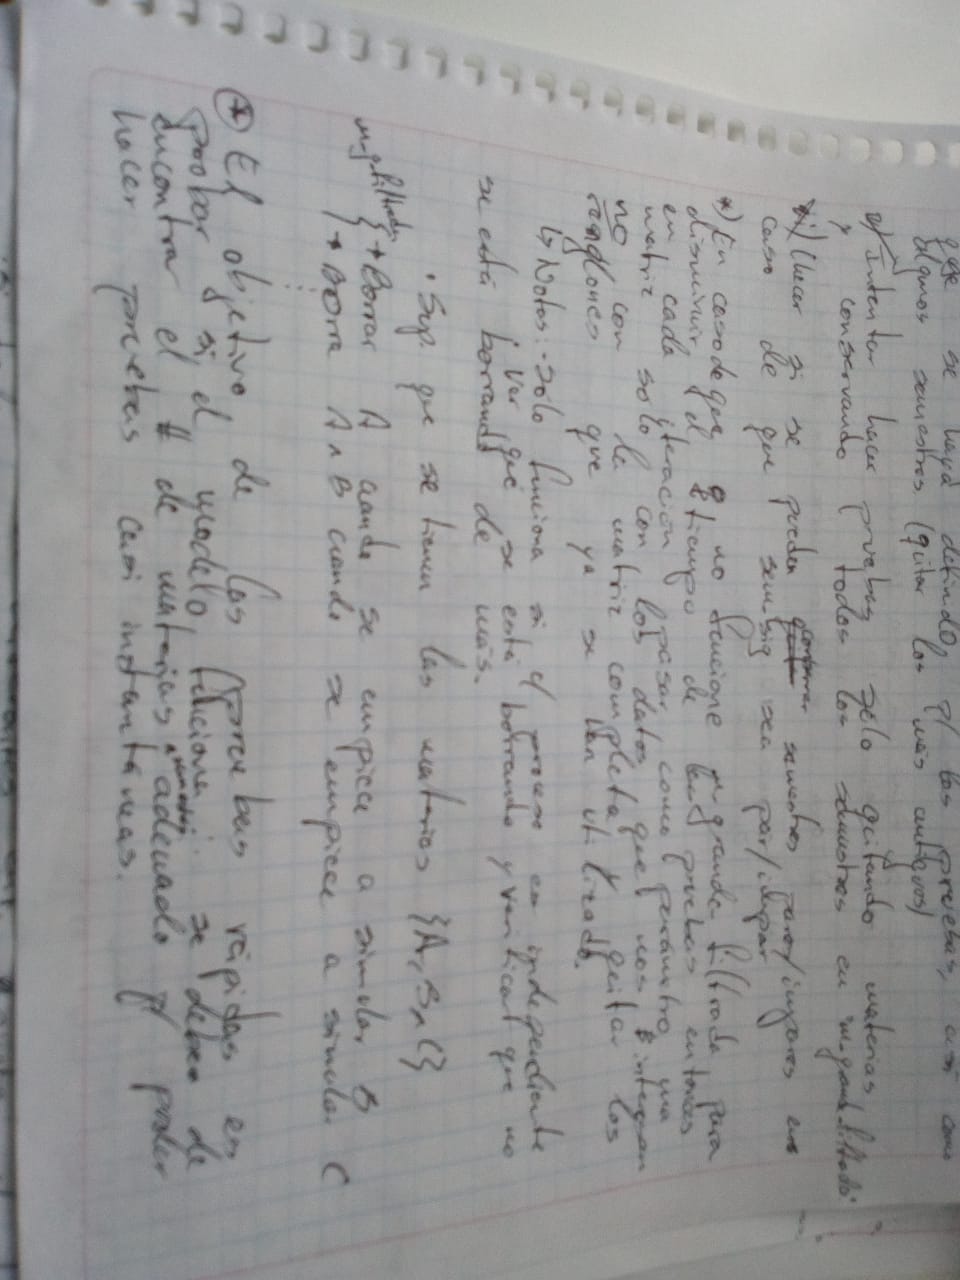 que se haya definido p/ las pruebas, así como
algunos semestres (quitar los más antiguos)
Intentar hacer pruebas sólo quitando materias
y conservando todos los semestres en "m_grande_filtrada"
*) Checar si se pueden conservar semestres pares/impares en
caso de que sem_sig sea par/impar
*) En caso de que no funcione m_grande_filtrada, para
disminuir el tiempo de las pruebas entonces
en cada iteración pasar como parámetro una
matriz solo con los datos que nos interesan
no con la matriz completa y quitar los
renglones que ya se han utilizado.
↳ Notas: - sólo funciona si c/ proceso es independiente
. Ver que se está borrando y verificar que no
se está borrando de más.
• Sup. que se tienen las materias {A, B, C}
m_g_filtrada { → Borrar A cuando se empiece a simular B
→ Borra A ∧ B cuando se empiece a simular C
⋮
⊛ El objetivo de las pruebas rápidas es
probar si el modelo funciona : se deben de
encontrar el # de materias semestres adecuado p/ poder
hacer pruebas casi instantáneas.